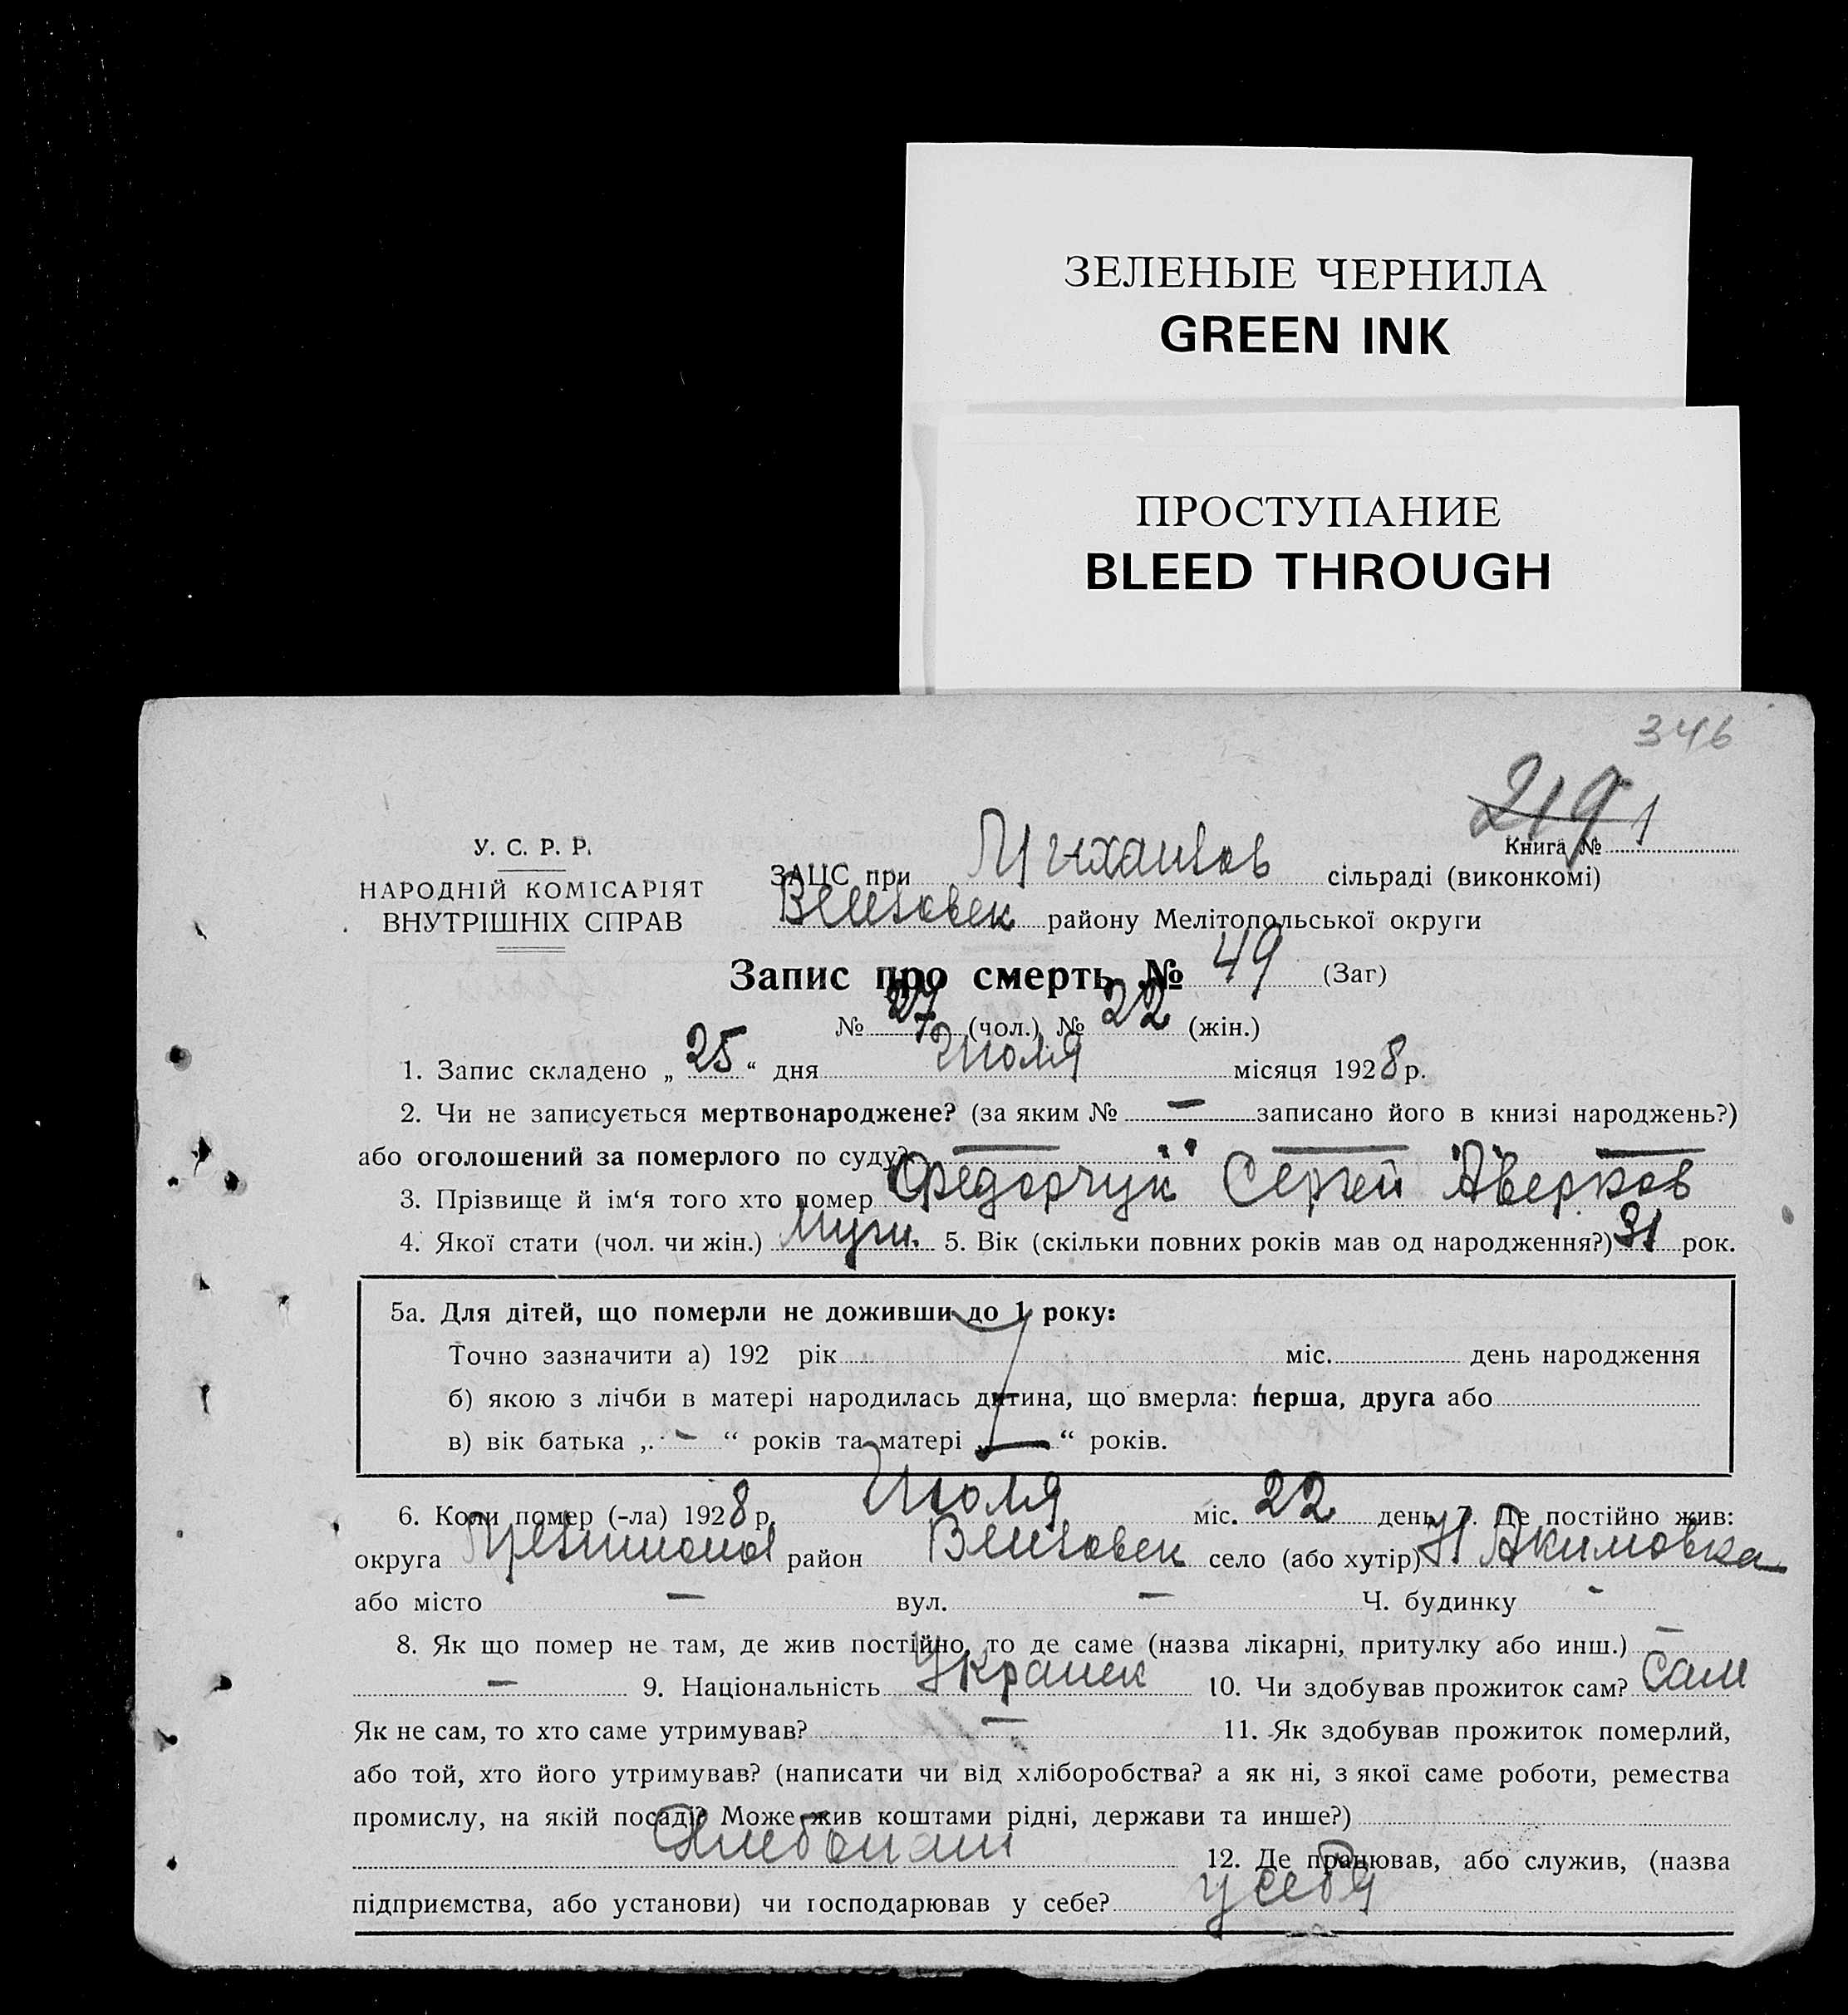 ЗЕЛЕНЫЕ ЧЕРНИЛА
GREEN INK
ПРОСТУПАНИЕ
BLEED THROUGH
346
219 1
Книга №
У. С. Р. Р.
НАРОДНІЙ КОМІСАРІЯТ
ВНУТРІШНІХ СПРАВ
ЗАЦС при Михайлов сільраді (виконкомі)
району Мелітопольської округи
Запис про смерть № 49 (Заг)
№ 27 (чол.) № 22 (жін.)
1. Запис складено „ 25 “ дня Июля місяця 1928 р.
2. Чи не записується мертвонароджене? (за яким № — записано його в книзі народжень?)
або оголошений за померлого по суду?
3. Прізвище й ім‘я того хто помер Федорчук Сергей Аверков
4. Якої стати (чол. чи жін.) Муж. 5. Вік (скільки повних років мав од народження?) 31 рок.
5а. Для дітей, що померли не доживши до 1 року:
Точно зазначити а) 192 рік міс. день народження
б) якою з лічби в матері народилась дитина, що вмерла: перша, друга або
в) вік батька „ - “ років та матері „ — “ років.
6. Коли помер (-ла) 1928 р. Июля міс. 22 день 7. Де постійно жив:
округа район село (або хутір) Н Акимовка
або місто — вул. — Ч. будинку -
8. Як що помер не там, де жив постійно, то де саме (назва лікарні, притулку або инш.) —
— 9. Національність Украинек 10. Чи здобував прожиток сам? Сам
Як не сам, то хто саме утримував? — 11. Як здобував прожиток померлий,
або той, хто його утримував? (написати чи від хліборобства? а як ні, з якої саме роботи, ремества
промислу, на якій посаді? Може жив коштами рідні, держави та инше?)
Хлебопаш 12. Де працював, або служив, (назва
підприємства, або установи) чи господарював у себе? у себя